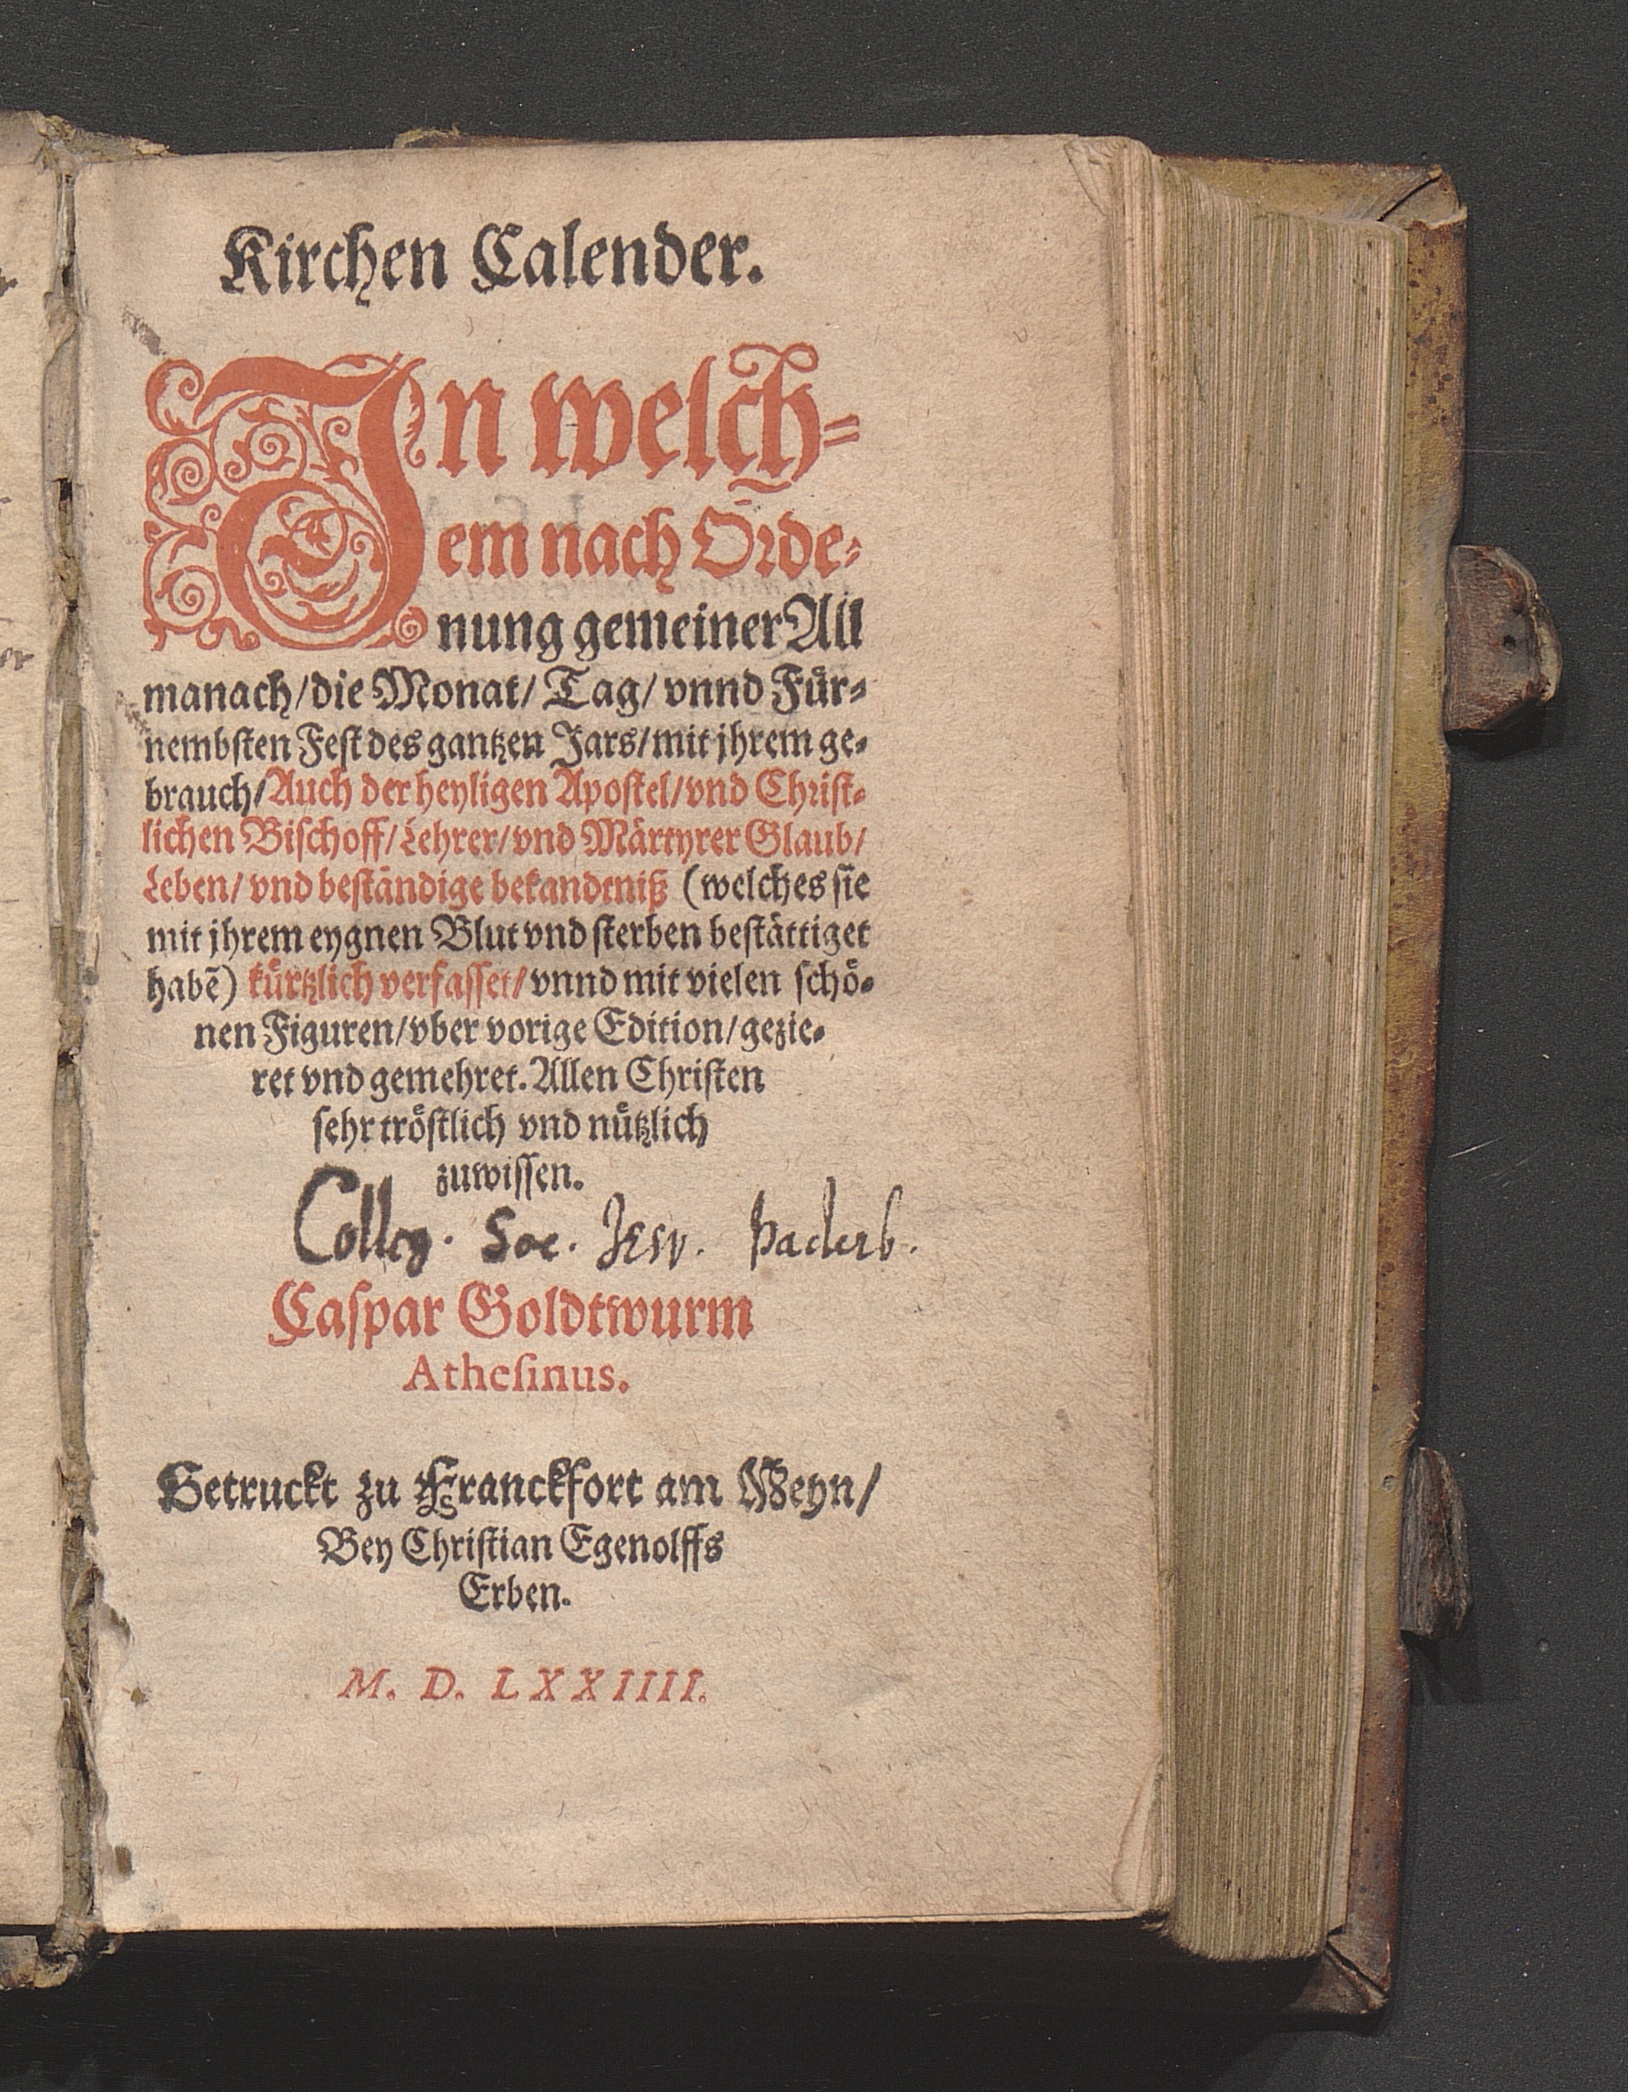 Kirchen Calender.
In welch=
em nach Orde=
nung gemeiner All
manach/die Monat/Tag/vnnd Fuͤr=
nembsten Fest des gantzen Jars/mit jhrem ge=
brauch/Auch der heyligen Apostel/vnd Christ=
lichen Bischoff/Lehrer/vnd Maͤrtyrer Glaub/
Leben/vnd bestaͤndige bekandtniß (welches sie
mit jhrem eygnen Blut vnd sterben bestaͤttiget
habẽ) kuͤrtzlich verfasset/vnnd mit vielen schoͤ=
nen Figuren/vber vorige Edition/gezie=
ret vnd gemehret. Allen Christen
sehr troͤstlich vnd nuͤtzlich
zuwissen.
Colleg. Soc. Jesu. Paderb.
Caspar Goldtwurm
Athesinus.
Getruckt zu Franckfort am Meyn/
Bey Christian Egenolffs
Erben.
M. D. LXXIIII.